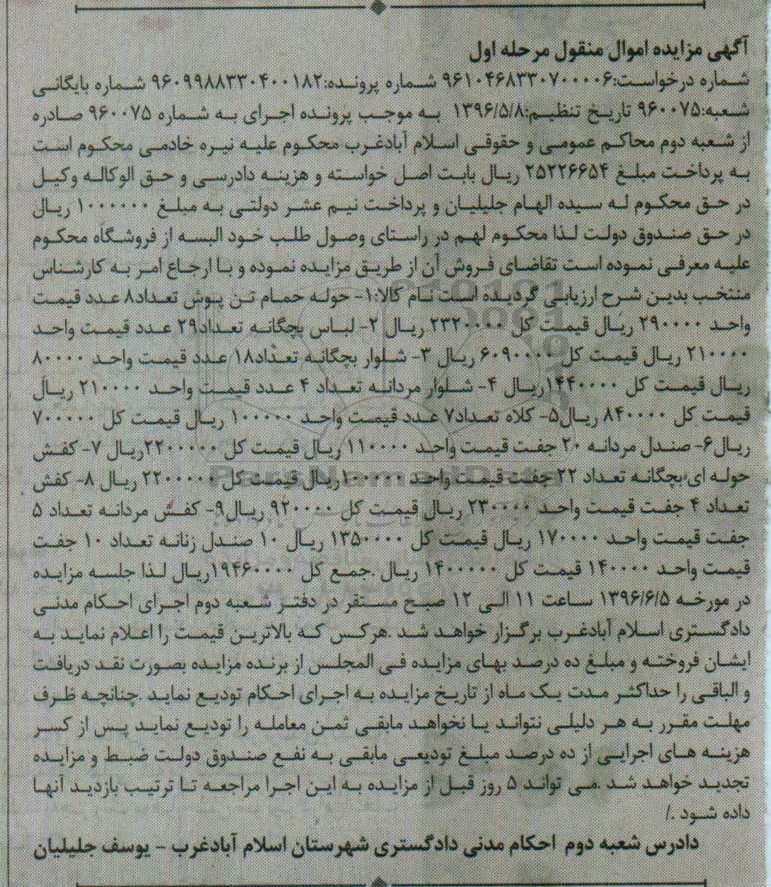 آگهی مزایده اموال منقول مرحله اول
شماره درخواست:۹۶۱۰۴۶۸۳۳۰۷۰۰۰۰۶ شماره پرونده:۹۶۰۹۹۸۸۳۳۰۴۰۰۱۸۲ شماره بایگانی
شعبه:۹۶۰۰۷۵ تاریخ تنظیم:۱۳۹۶/۵/۸ به موجب پرونده اجرای به شماره ۹۶۰۰۷۵ صادره
از شعبه دوم محاکم عمومی و حقوقی اسلام آبادغرب محکوم علیه نیره خادمی محکوم است
به پرداخت مبلغ ۲۵۲۲۶۶۵۴ ریال بابت اصل خواسته و هزینه دادرسی و حق الوکاله وکیل
در حق محکوم له سیده الهام جلیلیان و پرداخت نیم عشر دولتی به مبلغ ۱۰۰۰۰۰۰ ریال
در حق صندوق دولت لذا محکوم لهم در راستای وصول طلب خود البسه از فروشگاه محکوم
علیه معرفی نموده است تقاضای فروش آن از طریق مزایده نموده و با ارجاع امر به کارشناس
منتخب بدین شرح ارزیابی گردیده است نام کالا:۱- حوله حمام تن پوش تعداد۸ عدد قیمت
واحد ۲۹۰۰۰۰ ریال قیمت کل ۲۳۲۰۰۰۰ ریال ۲- لباس بچگانه تعداد۲۹ عدد قیمت واحد
۲۱۰۰۰۰ ریال قیمت کل ۶۰۹۰۰۰۰ ریال ۳- شلوار بچگانه تعداد۱۸ عدد قیمت واحد ۸۰۰۰۰
ریال قیمت کل ۱۴۴۰۰۰۰ریال ۴- شلوار مردانه تعداد ۴ عدد قیمت واحد ۲۱۰۰۰۰ ریال
قیمت کل ۸۴۰۰۰۰ ریال۵- کلاه تعداد۷ عدد قیمت واحد ۱۰۰۰۰۰ ریال قیمت کل ۷۰۰۰۰۰
ریال۶- صندل مردانه ۲۰ جفت قیمت واحد ۱۱۰۰۰۰ ریال قیمت کل ۲۲۰۰۰۰۰ریال ۷- کفش
حوله ای بچگانه تعداد ۲۲ جفت قیمت واحد ۱۰۰۰۰۰ریال قیمت کل ۲۲۰۰۰۰۰ ریال ۸- کفش
تعداد ۴ جفت قیمت واحد ۲۳۰۰۰۰ ریال قیمت کل ۹۲۰۰۰۰ ریال۹- کفش مردانه تعداد ۵
جفت قیمت واحد ۱۷۰۰۰۰ ریال قیمت کل ۱۳۵۰۰۰۰ ریال ۱۰ صندل زنانه تعداد ۱۰ جفت
قیمت واحد ۱۴۰۰۰۰ قیمت کل ۱۴۰۰۰۰۰ ریال .جمع کل ۱۹۴۶۰۰۰۰ریال لذا جلسه مزایده
در مورخه ۱۳۹۶/۶/۵ ساعت ۱۱ الی ۱۲ صبح مستقر در دفتر شعبه دوم اجرای احکام مدنی
دادگستری اسلام آبادغرب برگزار خواهد شد .هرکس که بالاترین قیمت را اعلام نماید به
ایشان فروخته و مبلغ ده درصد بهای مزایده فی المجلس از برنده مزایده بصورت نقد دریافت
و الباقی را حداکثر مدت یک ماه از تاریخ مزایده به اجرای احکام تودیع نماید .چنانچه ظرف
مهلت مقرر به هر دلیلی نتواند یا نخواهد مابقی ثمن معامله را تودیع نماید پس از کسر
هزینه های اجرایی از ده درصد مبلغ تودیعی مابقی به نفع صندوق دولت ضبط و مزایده
تجدید خواهد شد .می تواند ۵ روز قبل از مزایده به این اجرا مراجعه تا ترتیب بازدید آنها
داده شود ./
دادرس شعبه دوم احکام مدنی دادگستری شهرستان اسلام آبادغرب - یوسف جلیلیان